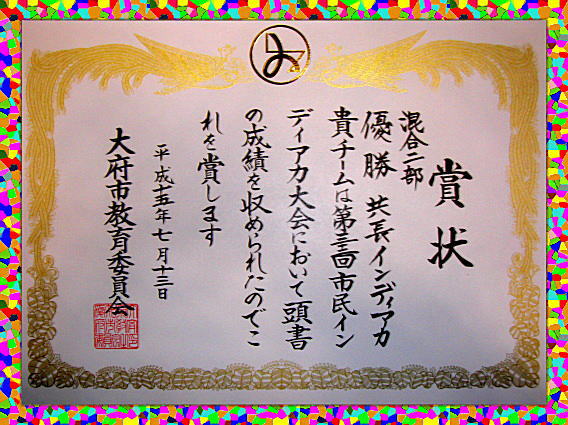 賞状
混合二部
優勝 共長インディアカ
貴チームは第三回市民イン
ディアカ大会において頭書
の成績を収められたのでこ
れを賞します
平成十五年七月十三日
大府市教育委員会